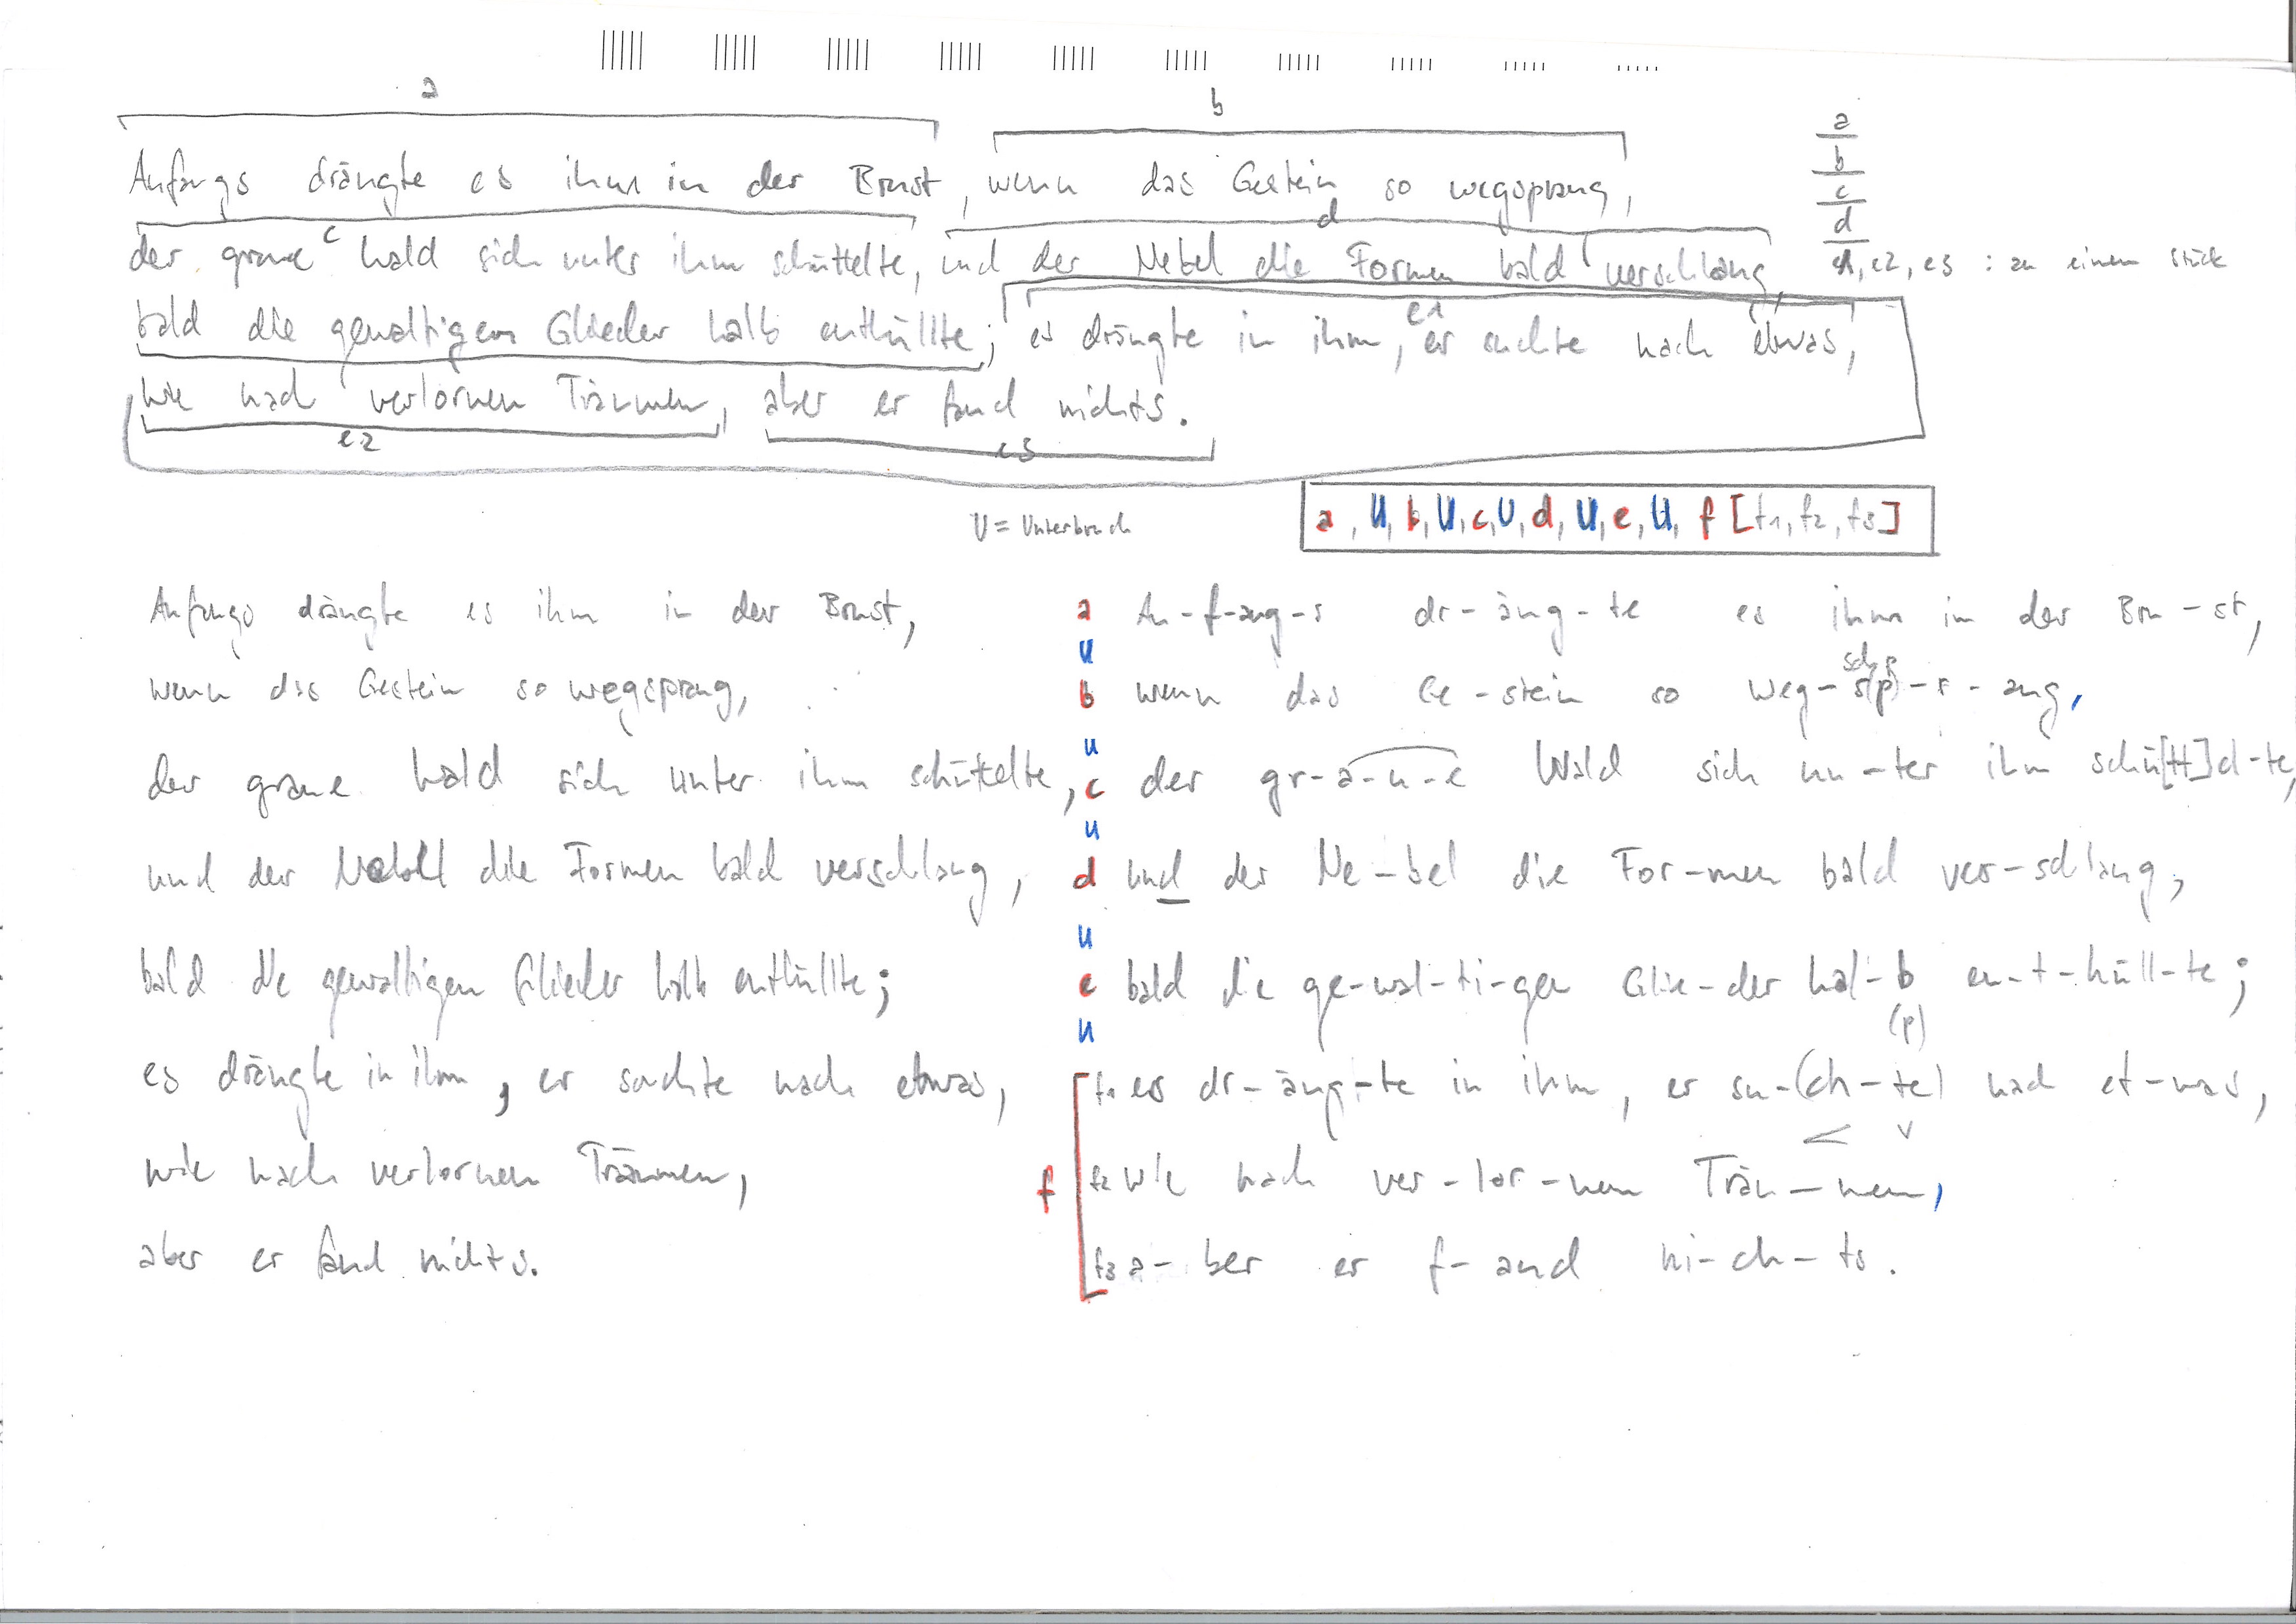 a
b
Anfangs drängte es ihm in der Brust, wenn das Gestein so wegsprang,
der graue Wald sich unter ihm schüttelte, und der Nebel die Formen bald verschlang,
bald die gewaltigen Glieder halb enthüllte; es drängte in ihm, er suchte nach etwas,
wie nach verlornen Träumen, aber er fand nichts.
c
d
e1
e2
e3
a
b
c
d
e1, e2, e3 : zu einem Stück
U = Unterbruch
a, U, b, U, c, U, d, U, e, U, f [f1, f2, f3]
Anfangs drängte es ihm in der Brust,
wenn das Gestein so wegsprang,
der graue Wald sich unter ihm schüttelte,
und der Nebel die Formen bald verschlang,
bald die gewaltigen Glieder halb enthüllte;
es drängte in ihm, er suchte nach etwas,
wie nach verlornen Träumen,
aber er fand nichts.
a An-f-ang-s dr-äng-te es ihm in der Bru-st,
U
sch p
b wenn das Ge-stein so weg-s(p)-r-ang,
U
c der gr-a-u-e Wald sich un-ter ihm schü[tt]el-te,
U
d und der Ne-bel die For-men bald ver-schlang,
U
e bald die ge-wal-ti-gen Glie-der hal-b en-t-hüll-te;
(p)
U
f
f1 es dr-äng-te in ihm, er su-(ch-te) nach et-was,
f2 wie nach ver-lor-nen Träu-men,
f3 a-ber er f-and ni-ch-ts.